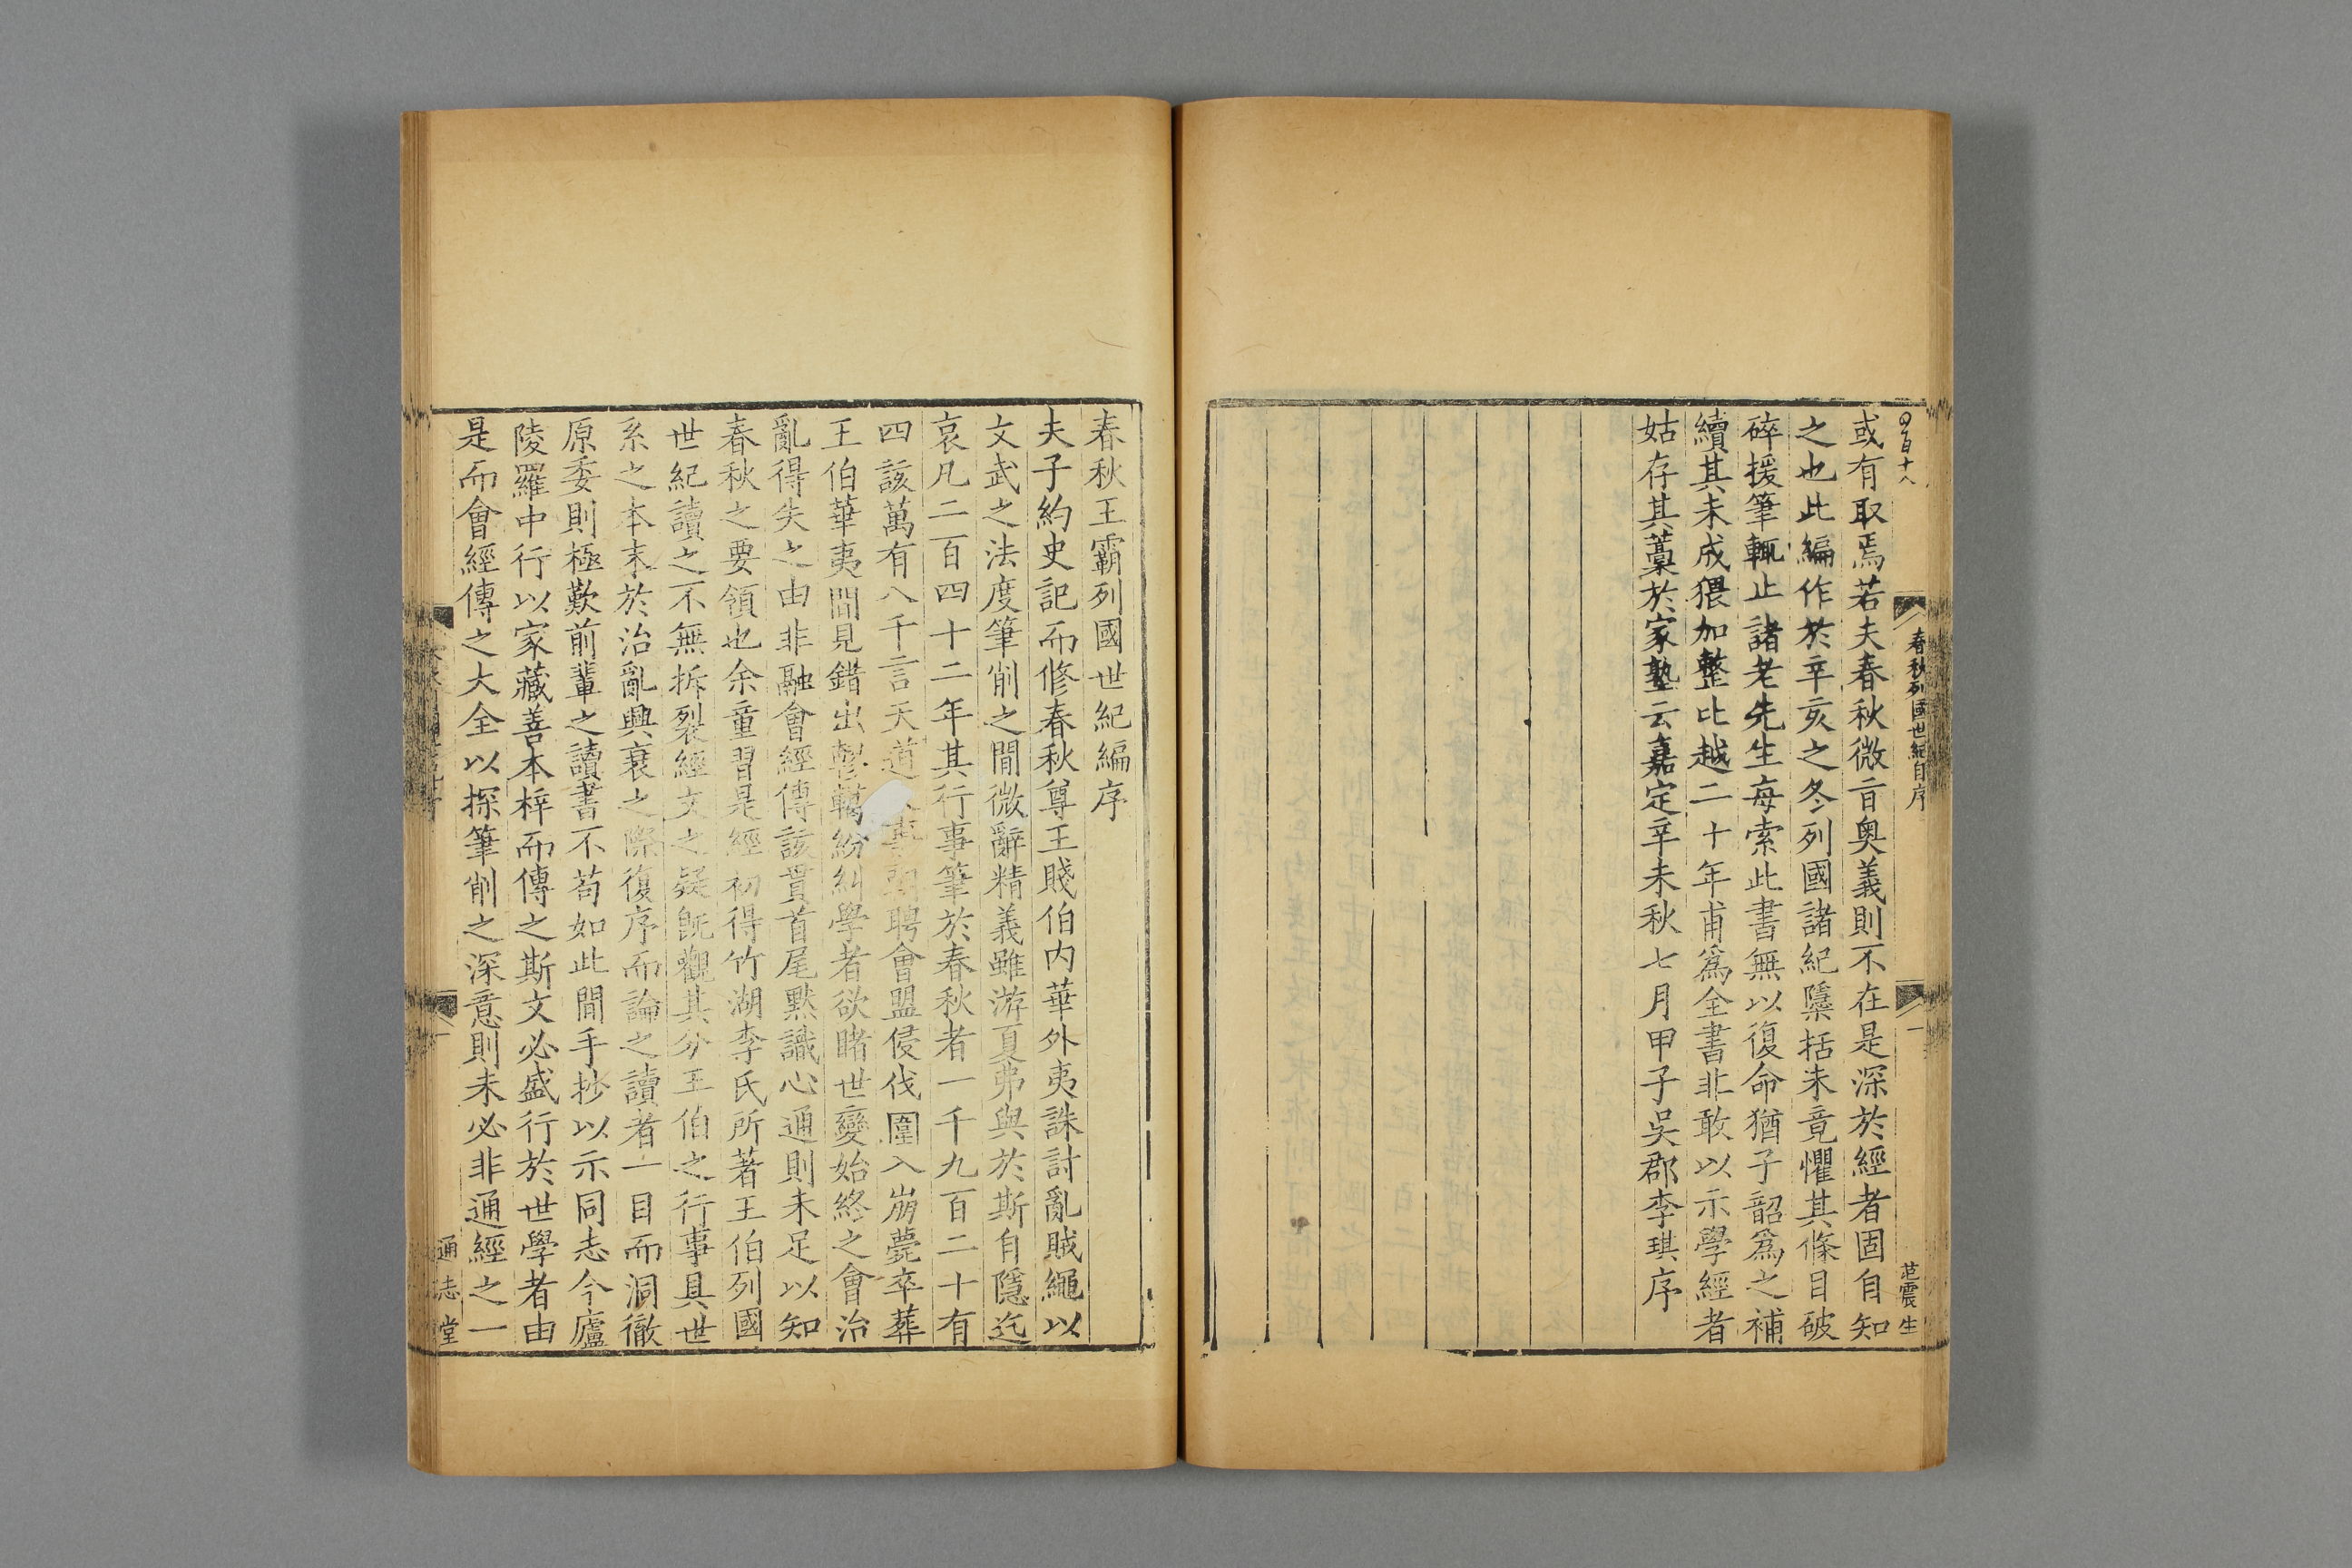 四百十八
春秋列國世紀自序
一
范震生
或有取焉若夫春秋微旨奧義則不在是深於經者固自知
之也此編作於辛亥之冬列國諸紀檃括未竟懼其條目破
碎援筆輒止諸老先生每索此書無以復命猶子韶爲之補
續其未成猥加整比越二十年甫爲全書非敢以示學經者
姑存其藁於家塾云嘉定辛未秋七月甲子吳郡李琪序
春秋王霸列國世紀編序
夫子約史記而修春秋尊王賤伯内華外夷誅討亂賊繩以
文武之法度筆削之間微辭精義雖游夏弗與於斯自隱迄
哀凡二百四十二年其行事筆於春秋者一千九百二十有
四該萬有八千言天道事朝聘會盟侵伐圍入崩薨卒葬
王伯華夷間見錯出轇轕紛糾學者欲睹世變始終之會治
亂得失之由非融會經傳該貫首尾默識心通則未足以知
春秋之要領也余童習是經初得竹湖李氏所著王伯列國
世紀讀之不無拆裂經文之疑旣觀其分王伯之行事具世
系之本末於治亂興衰之際復序而論之讀者一目而洞徹
原委則極歎前輩之讀書不苟如此間手抄以示同志今廬
陵羅中行以家藏善本梓而傳之斯文必盛行於世學者由
是而會經傳之大全以探筆削之深意則未必非通經之一
一
通志堂